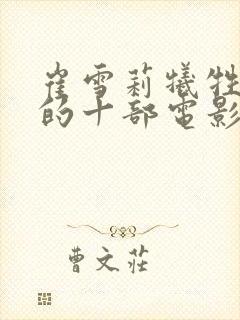 崔雪莉犧牲
的十部電影
曹文莊